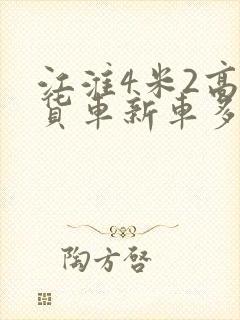 江淮4米2高
货车新车多
陶方启